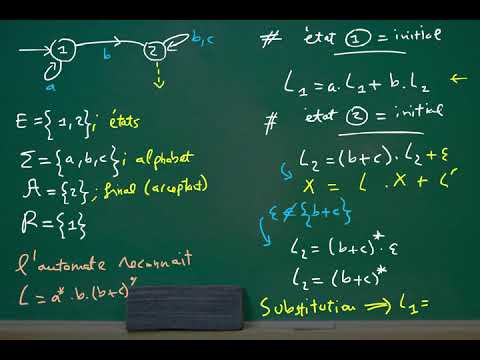 1
2
a
b
b,c
E = {1,2}; états
Σ = {a,b,c}; alphabet
A = {2}; final (acceptant)
R = {1}
l'automate reconnait
L = a*.b.(b+c)*
# état 1 = initial
L₁ = a.L₁ + b.L₂ ←
# état 2 = initial
L₂ = (b+c).L₂ + ε
X = L.X + L'
ε ∉ {b+c}
L₂ = (b+c)*.ε
L₂ = (b+c)*
Substitution ⟹ L₁ =